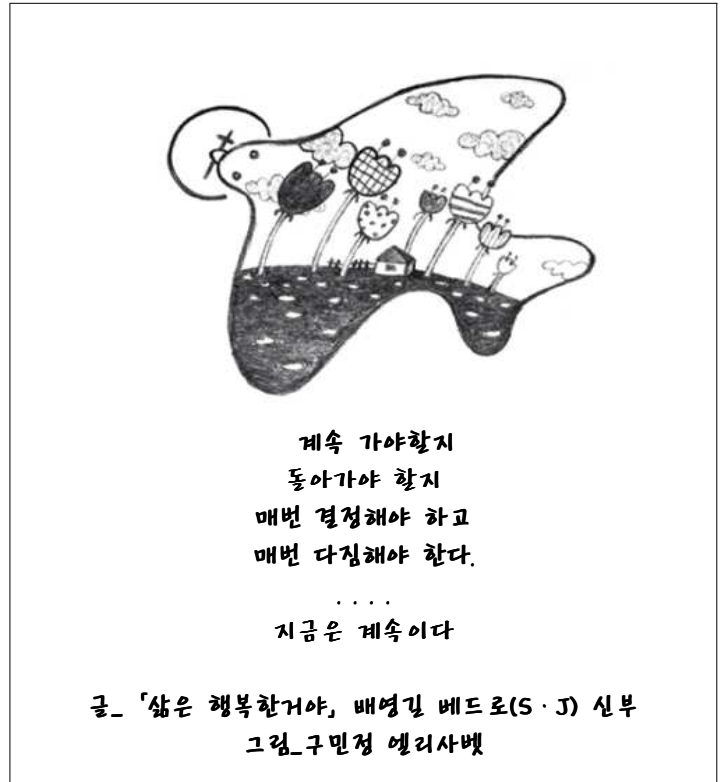 계속 가야할지
돌아가야 할지
매번 결정해야 하고
매번 다짐해야 한다.
....
지금은 계속이다
글_ 「삶은 행복한거야」 배영길 베드로(S·J) 신부
그림_구민정 엘리사벳